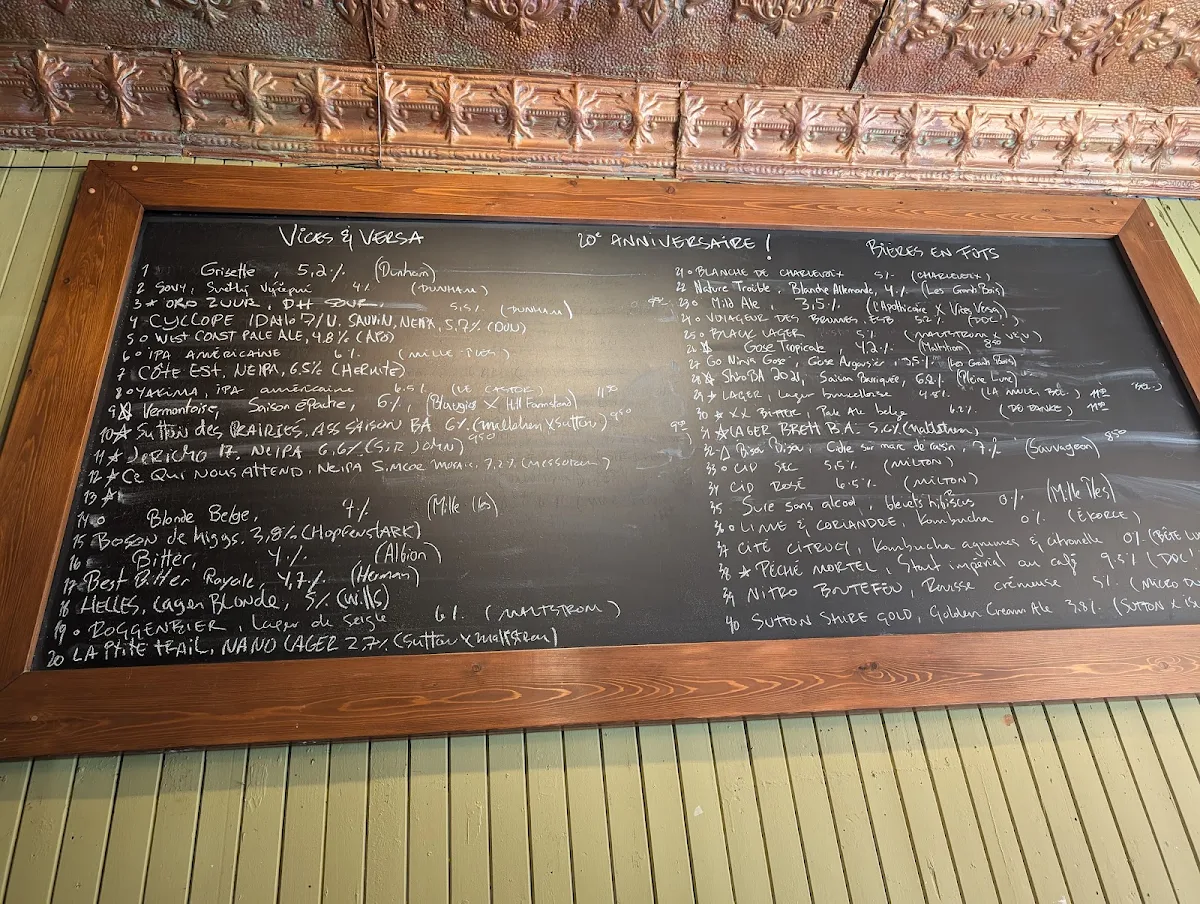 VICES & VERSA
20e ANNIVERSAIRE !
BIÈRES EN FÛTS
1 Grisette, 5,2% (Dunham)
2 SOUR, 4% (DUNHAM)
3 ★ ORO ZUUR, DH SOUR, 5,5% (DUNHAM)
4 CYCLOPE IDAHO 7/N. SAUVIN, NEIPA, 5,7% (DUN)
5 o WEST COAST PALE ALE, 4.8% (APO)
6 o IPA AMÉRICAINE 6% (MILLE-ÎLES)
7 CÔTE EST, NEIPA, 6,5% (HERMITE)
8 o YAKIMA, IPA américaine 6.5% (LE CASTOR) 11 50
9 ★ Vermontoise, Saison épeautre, 6% (Blaugies X Hill Farmstead)
10 ★ SUTTON des PRAIRIES, ASS SAISON BA 6% (Maltstrom X Sutton) 9 50
11 ★ JERICHO 17, NEIPA 6,6% (SIR JOHN) 9 50
12 ★ Ce Qui Nous Attend, NEIPA Simcoe mosaic, 7.2% (Messorem)
13 ★
14 o Blonde Belge, 7% (Mille Iles)
15 BOSON de higgs, 3,8% (HOPFENSTARK)
16 Bitter, 4% (Albion)
17 Best Bitter Royale, 4,7% (Herman)
18 HELLES, Lager BLONDE, 5% (Wills)
19 o ROGGENBIER, Lager de seigle 6% (MALTSTROM)
20 LA P'tite TRAIL, NANO LAGER 2.7% (Sutton X Maltstrom)
21 o BLANCHE DE CHARLEVOIX 5% (CHARLEVOIX)
22 Nature Trouble, Blanche Allemande, 4% (Les Grands Bois)
23 o Mild Ale, 3,5% (L'Apothicaire X Vices Versa)
24 o VOYAGEUR DES BRUMES, ESB 5.2% (DDC!)
25 o BLACK LAGER 5% (MALTSTROM X VEV)
26 ★ Gose Tropicale 4,2% (Maltstrom) 8 50
27 Go Ninja Gose, Gose Argousier, 3.5% (Les Grands Bois)
28 ★ ShiroBA 2021, Saison Barriquée, 6.2% (Pleine Lune)
29 ★ LAGER, Lager bruxelloise 4.8% (LA MULE BEL.) 11 50
30 ★ XX BITTER, Pale Ale belge 6.2% (DE RANKE) 11 50
31 ★ LAGER BRETT B.A. 5.6% (Maltstrom)
32 Δ Bisou Bisou, Cidre sur marc de raisin, 7% (Sauvageon) 8 50
33 o CID SEC 5,5% (MILTON)
34 CID ROSÉ 6.5% (MILTON)
35 Sure sans alcool, bleuets hibiscus 0% (Mille Îles)
36 o LIME & CORIANDRE, Kombucha 0% (ÉKORCE)
37 CITÉ CITRUCY, Kombucha agrumes & citronelle 0% (BÊTE
38 ★ PÉCHÉ MORTEL, Stout impérial au café 9.5% (DDC
39 NITRO BOUTEFEU, Rousse crémeuse 5% (MICRO DU
40 SUTTON SHIRE GOLD, Golden Cream Ale 3.8% (SUTTON X